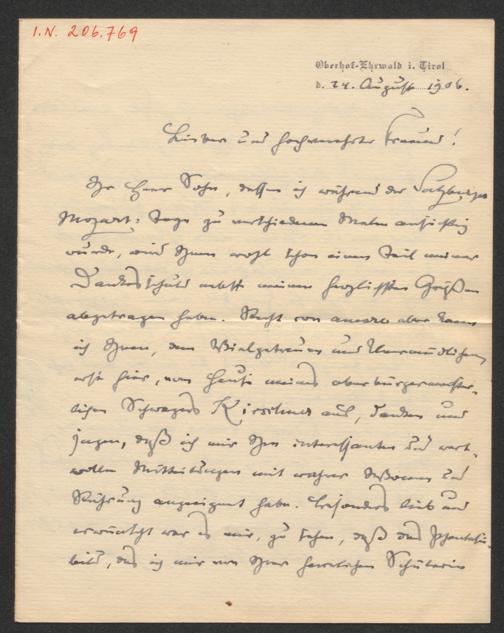 I.N. 206.769
Oberhof-Ehrwald i. Tirol
d. 24. August 1906.
Lieber und hochverehrter Freund!
Ihr Herr Sohn, dessen ich während der Salzburger
Mozart-Tage zu verschiedenen Malen ansichtig
wurde, wird Ihnen wohl schon einen Teil meiner
Dankesschuld nebst meinen herzlichsten Grüßen
abgetragen haben. Recht con amore aber kann
ich Ihnen, dem Vielgetreuen und Unermüdlichen
erst hier, vom Hause meines oberbürgermeister-
lichen Schwagers Kirschner aus, danken und
sagen, daß ich mir Ihre interessanten und wert-
vollen Mitteilungen mit wahrer und
Rührung angeeignet habe. Besonders lieb und
erwünscht war es mir, zu sehen, daß das Phantasie-
bild, das ich mir von Ihrer herrlichen Schülerin